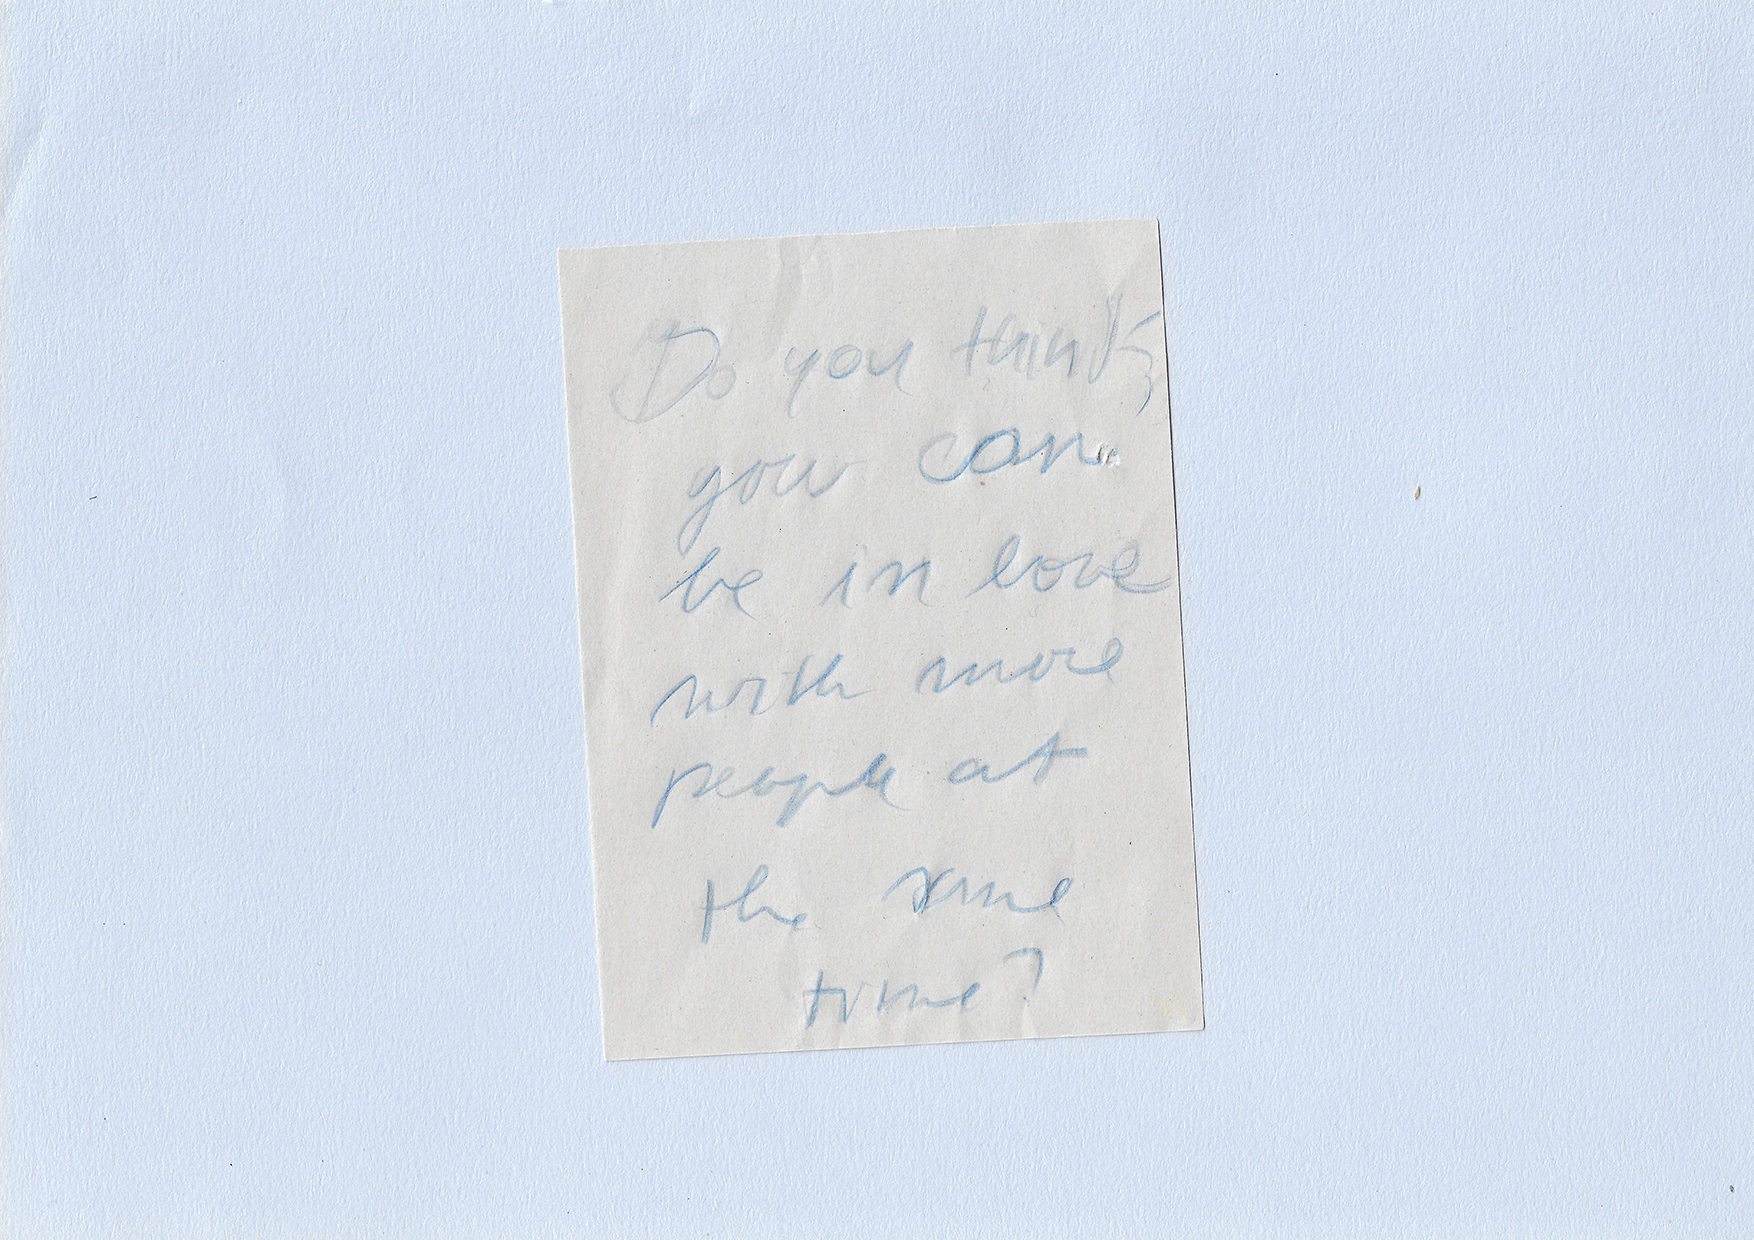 Do you think
you can
be in love
with more
people at
the same
time?